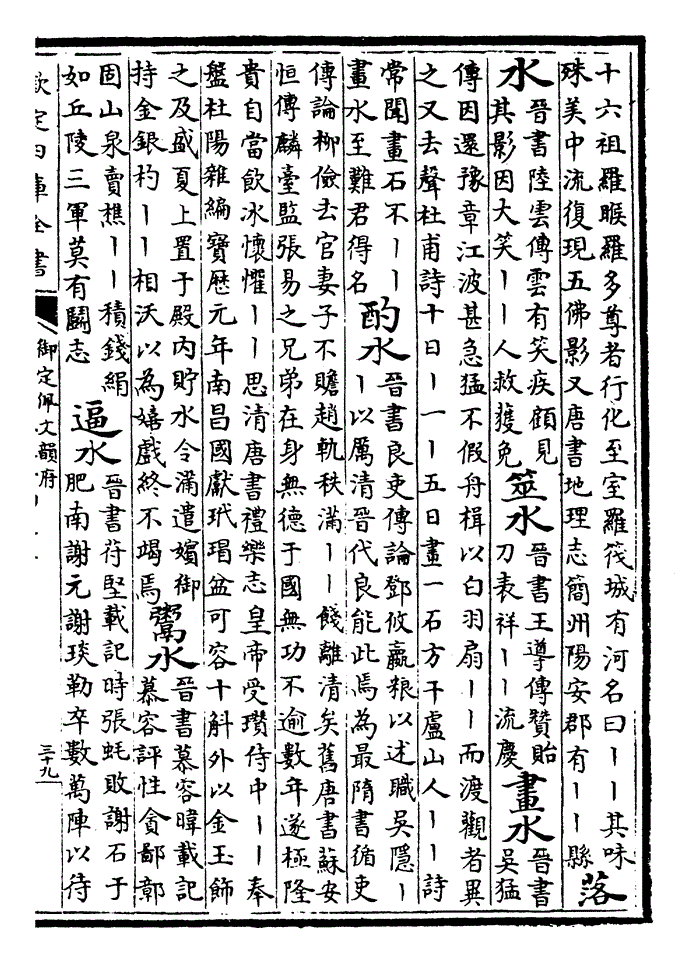 十六祖羅睺羅多尊者行化至室羅筏城有河名曰丨丨其味
殊美中流復現五佛影又唐書地理志簡州陽安郡有丨丨縣
落
水
晉書陸雲傳雲有笑疾顧見
其影因大笑丨丨人救獲免
筮水
晉書王導傳贊貽
刀表祥丨丨流慶
畫水
晉書
吳猛
傳因還豫章江波甚急猛不假舟楫以白羽扇丨丨而渡觀者異
之又去聲杜甫詩十日丨一丨五日畫一石方干盧山人丨丨詩
常聞畫石不丨丨
畫水至難君得名
酌水
晉書良吏傳論鄧攸嬴粮以述職吳隱丨
丨以厲清晉代良能此焉為最隋書循吏
傳論柳儉去官妻子不贍趙軌秩滿丨丨餞離清矣舊唐書蘇安
恒傳麟臺監張易之兄弟在身無德于國無功不逾數年遂極隆
貴自當飲冰懷懼丨丨思清唐書禮樂志皇帝受瓚侍中丨丨奉
盤杜陽雜編寶歷元年南昌國獻玳瑁盆可容十斛外以金玉飾
之及盛夏上置于殿內貯水令滿遣嬪御
持金銀杓丨丨相沃以為嬉戲終不竭焉
鬻水
晉書慕容暐載記
慕容評性貪鄙鄣
固山泉賣樵丨丨積錢絹
如丘陵三軍莫有鬬志
逼水
晉書苻堅載記時張蚝敗謝石于
肥南謝元謝琰勒卒數萬陣以待
欽定四庫全書
御定佩文韻府
三十九